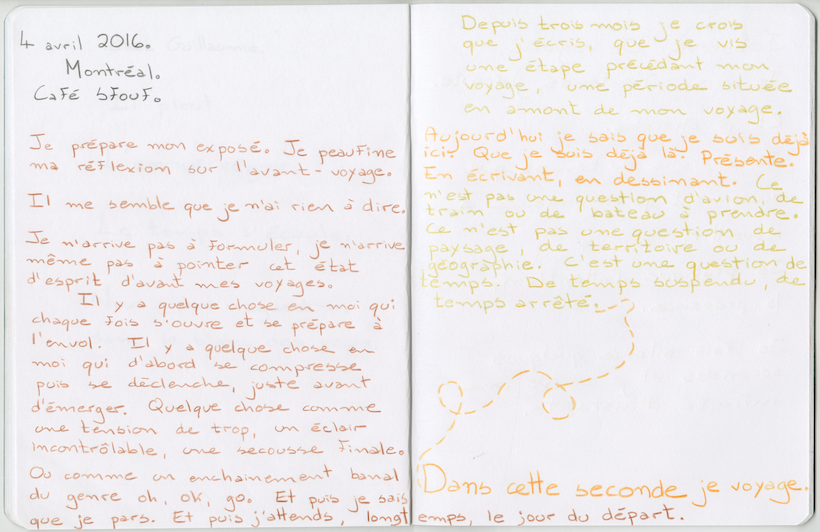 4 avril 2016.
Montréal.
Café sfouf.
Je prépare mon exposé. Je peaufine
ma réflexion sur l'avant-voyage.
Il me semble que je n'ai rien à dire.
Je n'arrive pas à formuler, je n'arrive
même pas à pointer cet état
d'esprit d'avant mes voyages.
Il y a quelque chose en moi qui
chaque fois s'ouvre et se prépare à
l'envol. Il y a quelque chose en
moi qui d'abord se compresse
puis se déclenche, juste avant
d'émerger. Quelque chose comme
une tension de trop, un éclair
incontrôlable, une secousse finale.
Ou comme un enchainement banal
du genre oh, ok, go. Et puis je sais
que je pars. Et puis j'attends, longtemps, le jour du départ.
Depuis trois mois je crois
que j'écris, que je vis
une étape précédant mon
voyage, une période située
en amont de mon voyage.
Aujourd'hui je sais que je suis déjà
ici. Que je suis déjà là. Présente.
En écrivant, en dessinant. Ce
n'est pas une question d'avion, de
train ou de bateau à prendre.
Ce n'est pas une question de
paysage, de territoire ou de
géographie. C'est une question de
temps. De temps suspendu, de
temps arrêté.
Dans cette seconde je voyage.